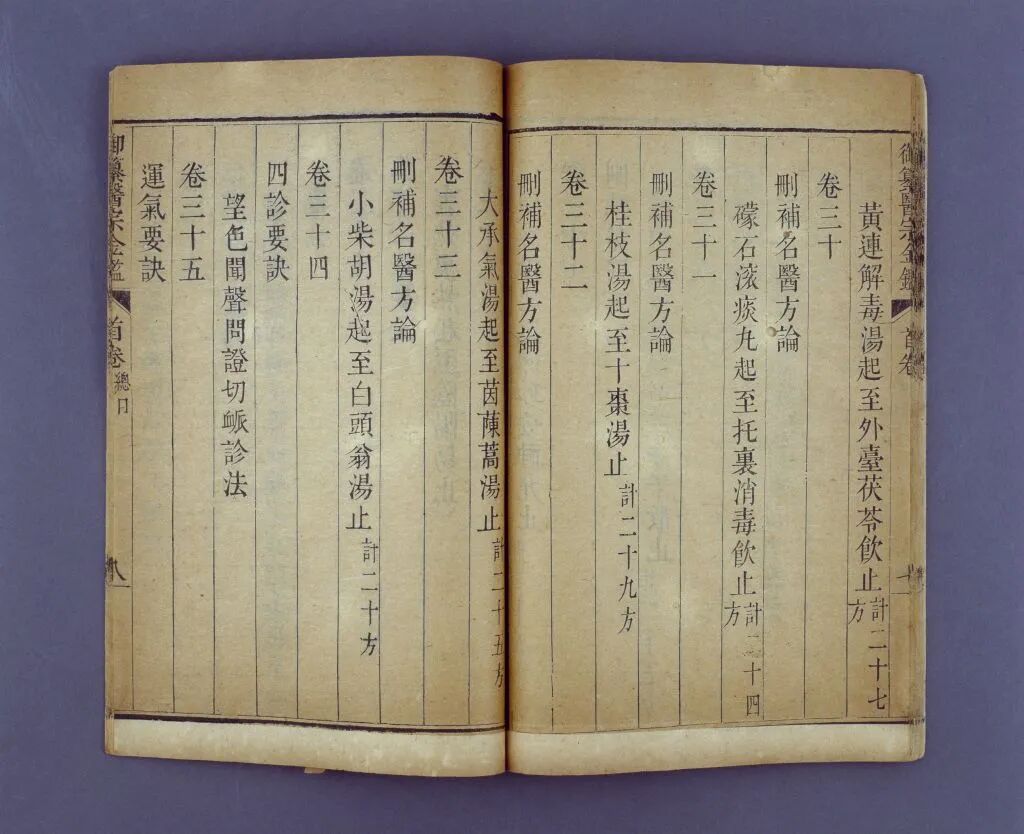 黃連解毒湯起至外臺茯苓飲止計二十七方
卷三十
刪補名醫方論
礞石滚痰丸起至托裏消毒飲止計二十四方
卷三十一
刪補名醫方論
桂枝湯起至十棗湯止計二十九方
卷三十二
刪補名醫方論
大承氣湯起至茵蔯蒿湯止計二十五方
卷三十三
刪補名醫方論
小柴胡湯起至白頭翁湯止計二十方
卷三十四
四診要訣
望色聞聲問證切脈診法
卷三十五
運氣要訣
御纂醫宗金鑑
首卷
總目
八